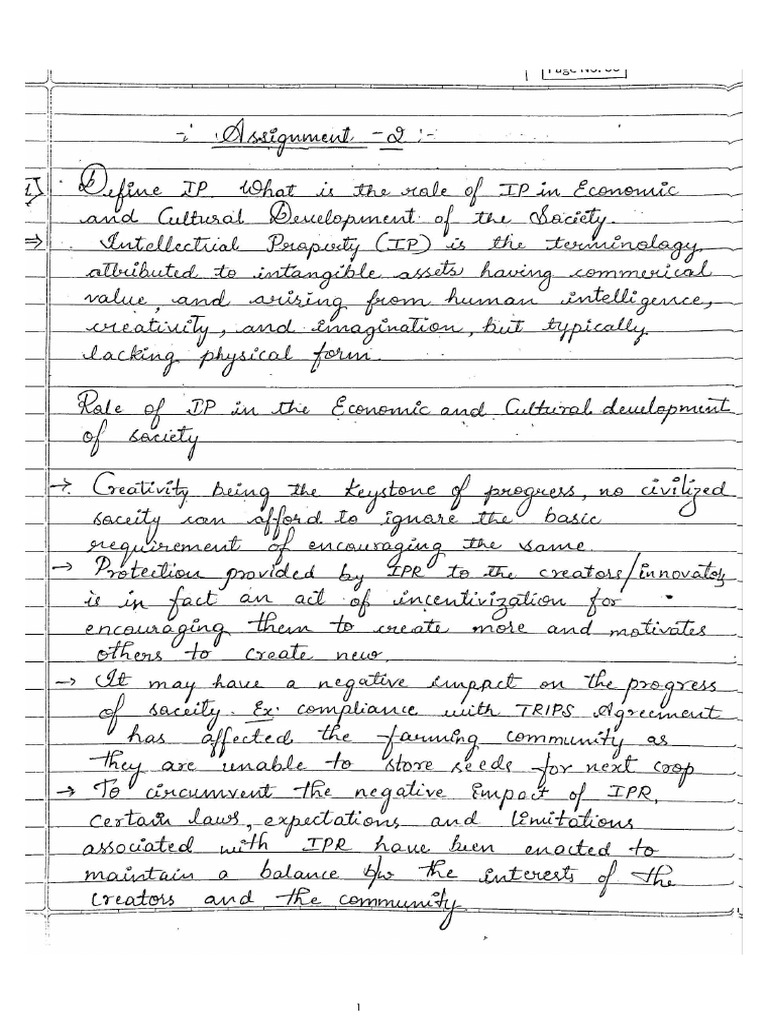 Page No. 
-: Assignment -2 :-
1) Define IP. What is the role of IP in Economic
and Cultural Development of the Society.
⇒ Intellectrial Property (IP) is the terminology
attributed to intangible assets having commerical
value, and arising from human intelligence,
creativity, and imagination, but typically
lacking physical form.
Role of IP in the Economic and Cultural development
of society
→ Creativity being the keystone of progress, no civilized
saceity can afford to ignore the basic
requirement of encouraging the same.
→ Protection provided by IPR to the creators/innovators
is in fact an act of incentivization for
encouraging them to create more and motivates
others to create new.
→ It may have a negative impact on the progress
of saceity. Ex: compliance with TRIPS Agreement
has affected the farming community as
they are unable to store seeds for next crop
→ To circumvent the negative impact of IPR,
certain laws, expectations and limitations
associated with IPR have been enacted to
maintain a balance b/w the interests of the
creators and the community
1